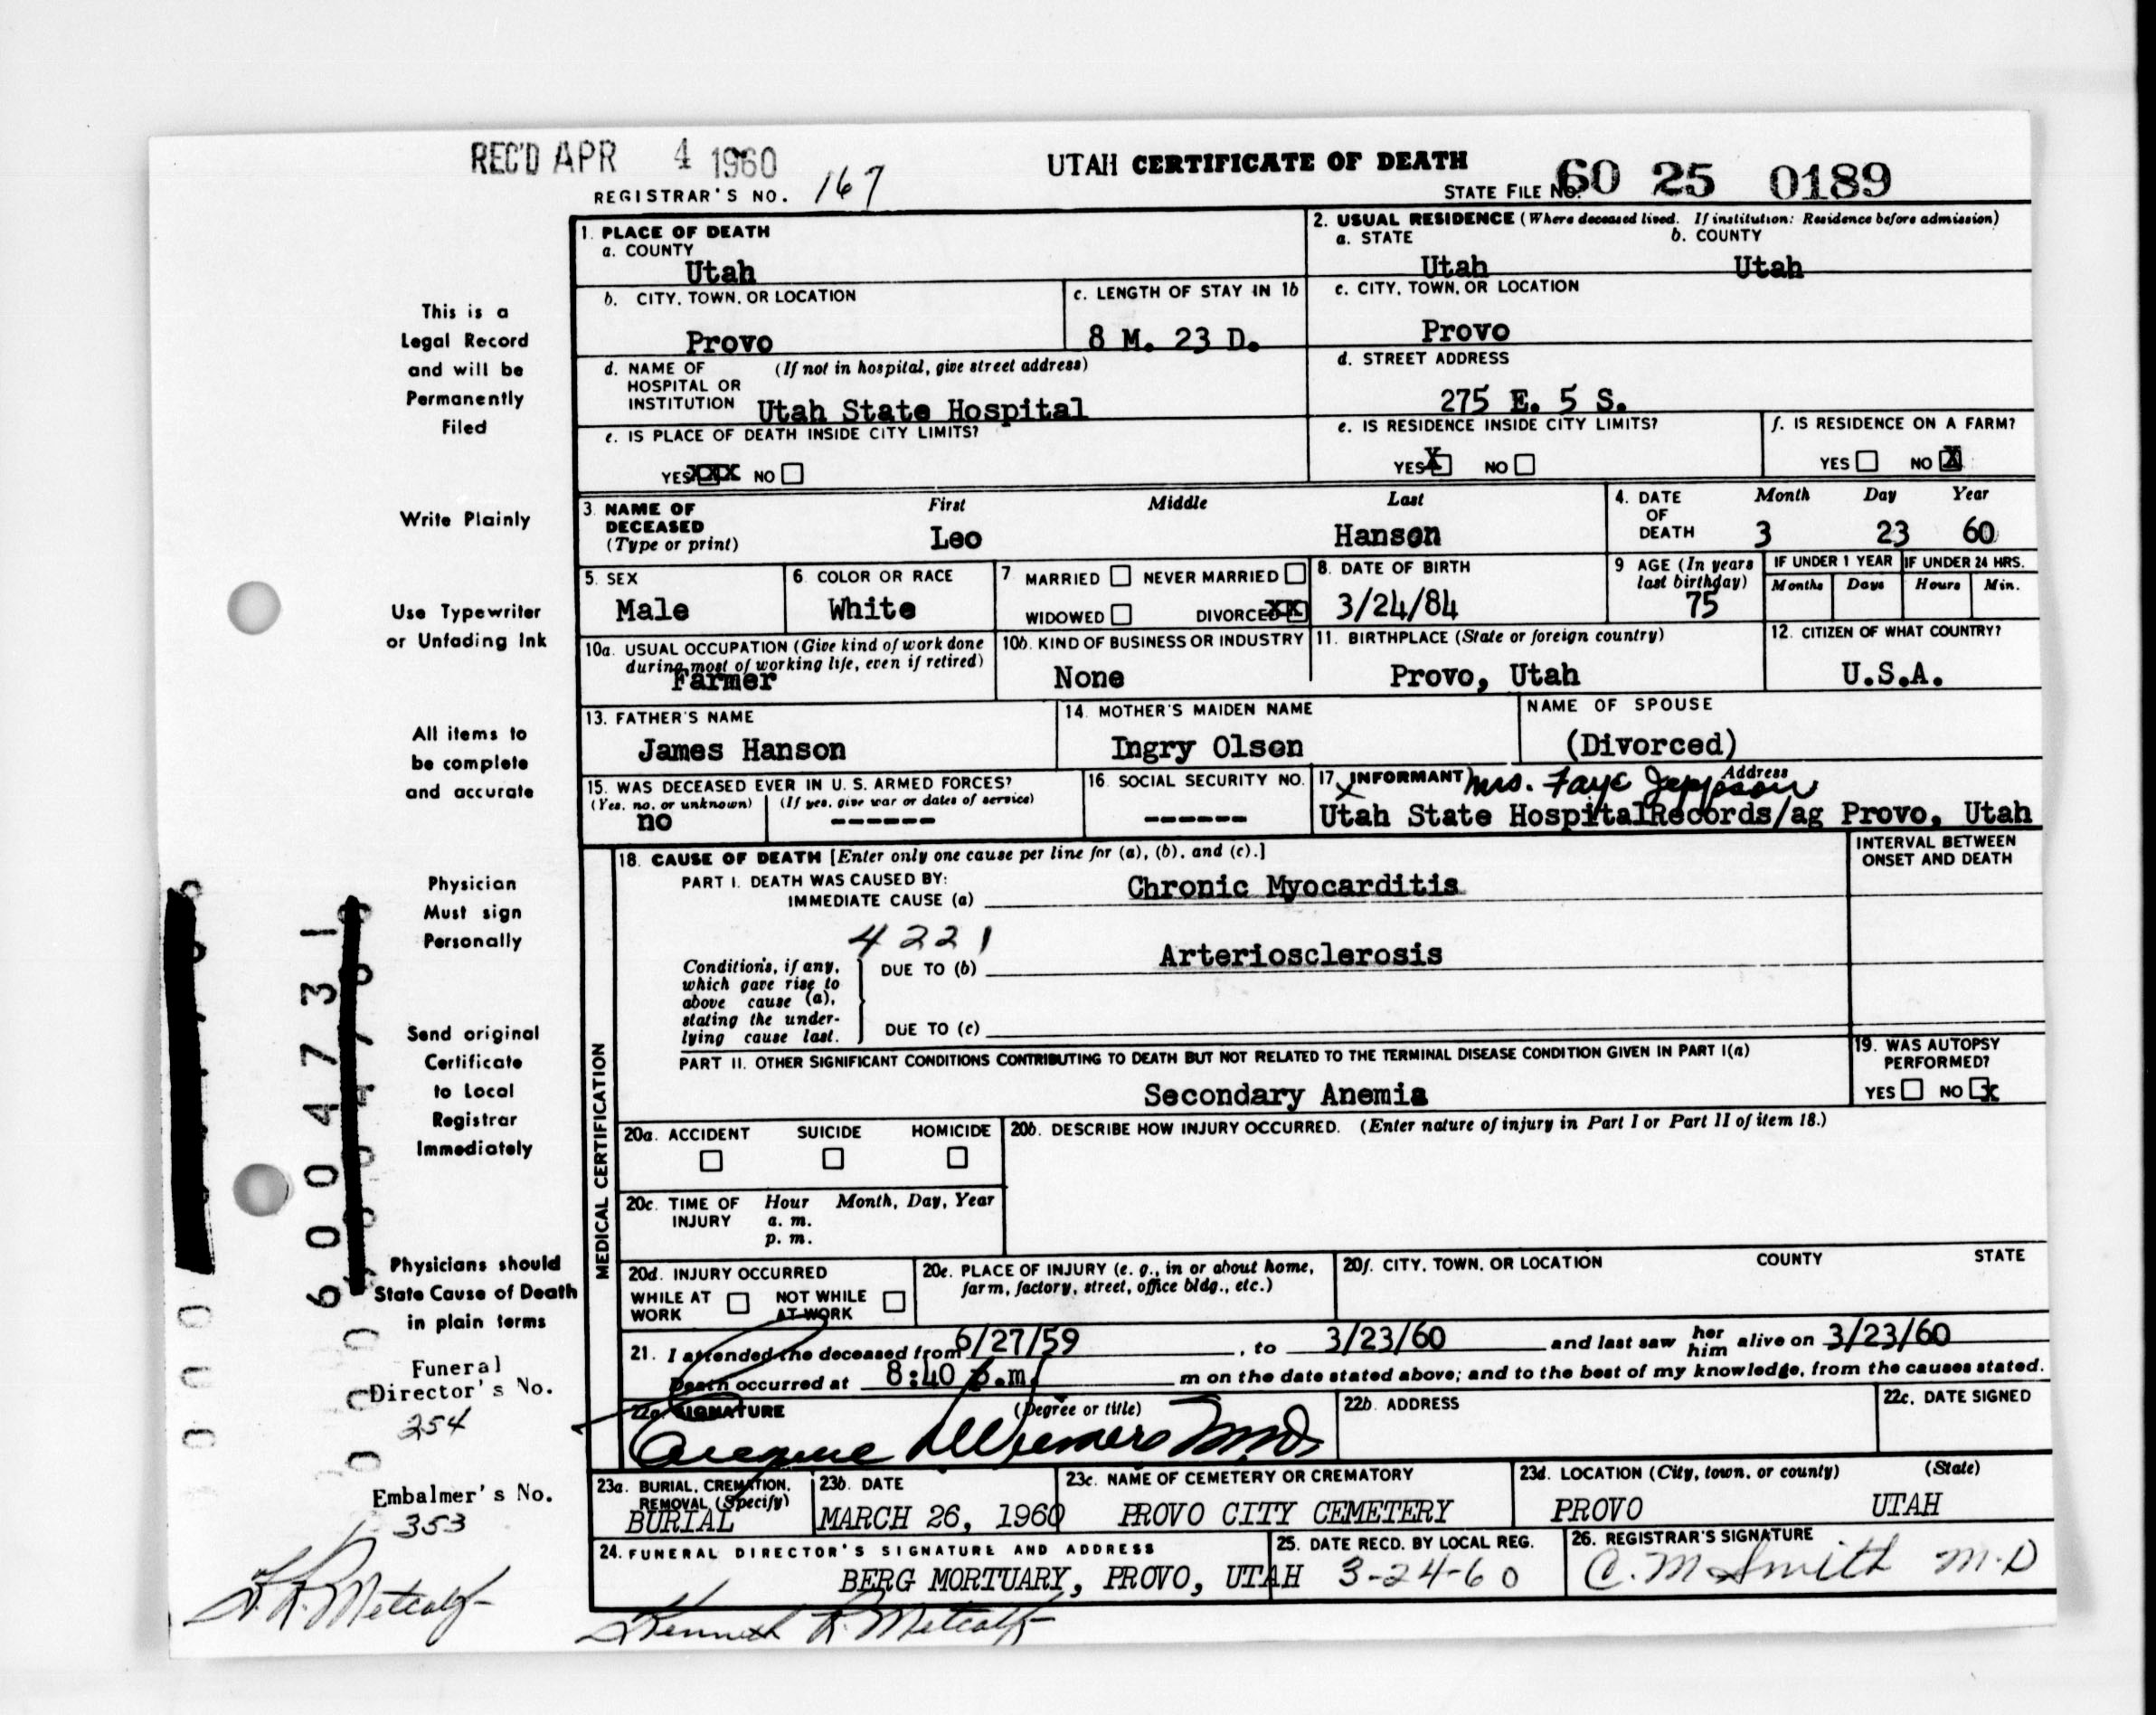 REC'D APR 4 1960
UTAH CERTIFICATE OF DEATH
REGISTRAR'S NO. 167
STATE FILE NO. 60 25 0189
This is a
Legal Record
and will be
Permanently
Filed
Write Plainly
Use Typewriter
or Unfading Ink
All items to
be complete
and accurate
Physician
Must sign
Personally
Send original
Certificate
to Local
Registrar
Immediately
Physicians should
State Cause of Death
in plain terms
Funeral
Director's No.
254
Embalmer's No.
353
6004731
1. PLACE OF DEATH
a. COUNTY
Utah
2. USUAL RESIDENCE (Where deceased lived. If institution: Residence before admission)
a. STATE b. COUNTY
Utah Utah
b. CITY, TOWN, OR LOCATION
Provo
c. LENGTH OF STAY IN 1b
8 M. 23 D.
c. CITY, TOWN, OR LOCATION
Provo
d. NAME OF (If not in hospital, give street address)
HOSPITAL OR
INSTITUTION Utah State Hospital
d. STREET ADDRESS
275 E. 5 S.
e. IS PLACE OF DEATH INSIDE CITY LIMITS?
YES XXX NO
e. IS RESIDENCE INSIDE CITY LIMITS?
YES X NO
f. IS RESIDENCE ON A FARM?
YES NO X
3. NAME OF
DECEASED
(Type or print)
First Middle Last
Leo Hanson
4. DATE
OF
DEATH
Month Day Year
3 23 60
5. SEX
Male
6. COLOR OR RACE
White
7. MARRIED NEVER MARRIED
WIDOWED DIVORCED XX
8. DATE OF BIRTH
3/24/84
9 AGE (In years
last birthday)
75
IF UNDER 1 YEAR IF UNDER 24 HRS.
Months Days Hours Min.
10a. USUAL OCCUPATION (Give kind of work done
during most of working life, even if retired)
Farmer
10b. KIND OF BUSINESS OR INDUSTRY
None
11. BIRTHPLACE (State or foreign country)
Provo, Utah
12. CITIZEN OF WHAT COUNTRY?
U.S.A.
13. FATHER'S NAME
James Hanson
14. MOTHER'S MAIDEN NAME
Ingry Olson
NAME OF SPOUSE
(Divorced)
15. WAS DECEASED EVER IN U. S. ARMED FORCES?
(Yes, no, or unknown) (If yes, give war or dates of service)
no ------
16. SOCIAL SECURITY NO.
------
17. INFORMANT Address
x Mrs. Faye Jeppson
Utah State HospitalRecords/ag Provo, Utah
MEDICAL CERTIFICATION
18. CAUSE OF DEATH [Enter only one cause per line for (a), (b), and (c).]
INTERVAL BETWEEN
ONSET AND DEATH
PART I. DEATH WAS CAUSED BY:
IMMEDIATE CAUSE (a) Chronic Myocarditis
4221
Conditions, if any,
which gave rise to
above cause (a),
stating the under-
lying cause last.
DUE TO (b) Arteriosclerosis
DUE TO (c)
PART II. OTHER SIGNIFICANT CONDITIONS CONTRIBUTING TO DEATH BUT NOT RELATED TO THE TERMINAL DISEASE CONDITION GIVEN IN PART I(a)
Secondary Anemia
19. WAS AUTOPSY
PERFORMED?
YES NO X
20a. ACCIDENT SUICIDE HOMICIDE
20b. DESCRIBE HOW INJURY OCCURRED. (Enter nature of injury in Part I or Part II of item 18.)
20c. TIME OF Hour Month, Day, Year
INJURY a. m.
p. m.
20d. INJURY OCCURRED
WHILE AT NOT WHILE
WORK AT WORK
20e. PLACE OF INJURY (e. g., in or about home,
farm, factory, street, office bldg., etc.)
20f. CITY, TOWN, OR LOCATION COUNTY STATE
21. I attended the deceased from 6/27/59, to 3/23/60 and last saw her him alive on 3/23/60
Death occurred at 8:40 p.m. m on the date stated above; and to the best of my knowledge, from the causes stated.
22a. SIGNATURE (Degree or title)
22b. ADDRESS
22c. DATE SIGNED
23a. BURIAL, CREMATION,
REMOVAL (Specify)
BURIAL
23b. DATE
MARCH 26, 1960
23c. NAME OF CEMETERY OR CREMATORY
PROVO CITY CEMETERY
23d. LOCATION (City, town, or county) (State)
PROVO UTAH
24. FUNERAL DIRECTOR'S SIGNATURE AND ADDRESS
BERG MORTUARY, PROVO, UTAH
25. DATE RECD. BY LOCAL REG.
3-24-60
26. REGISTRAR'S SIGNATURE
C. M Smith M.D
K. R. Metcalf
Kenneth R. Metcalf